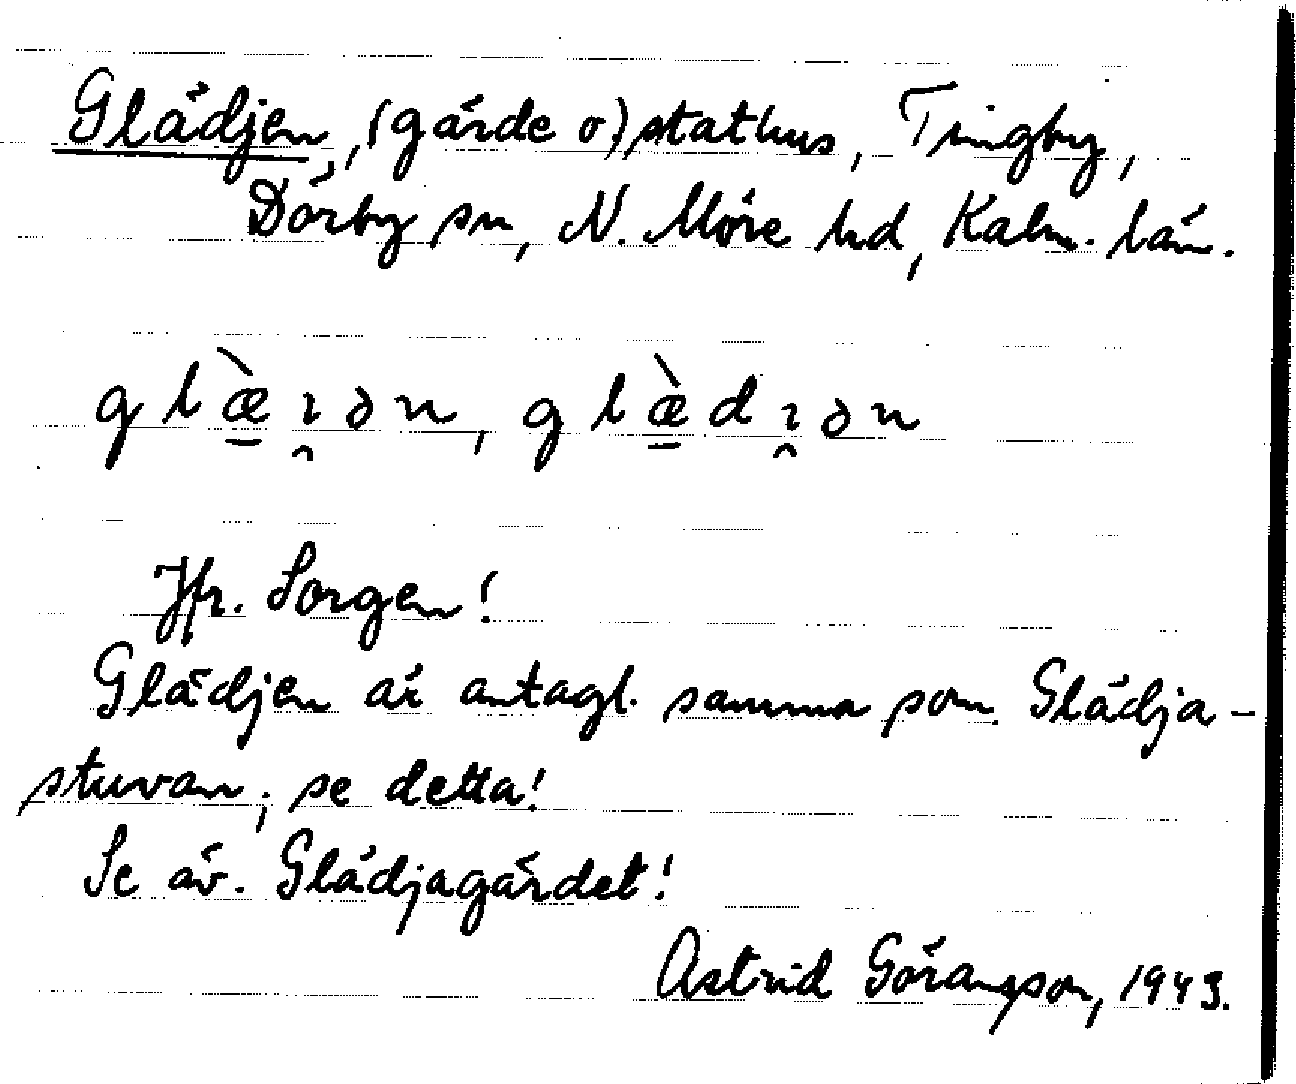 Glädjen, (gärde o) stathus, Tingby,
Dörby sn, N. Möre hd, Kalm. län.
g l æ̠̀ ı̯ ə n, g l æ̠̀ d ı̯ ə n
Jfr. Sorgen!
Glädjen är antagl. samma som Glädja-
stuvan; se detta!
Se äv. Glädjagärdet!
Astrid Göransson, 1943.